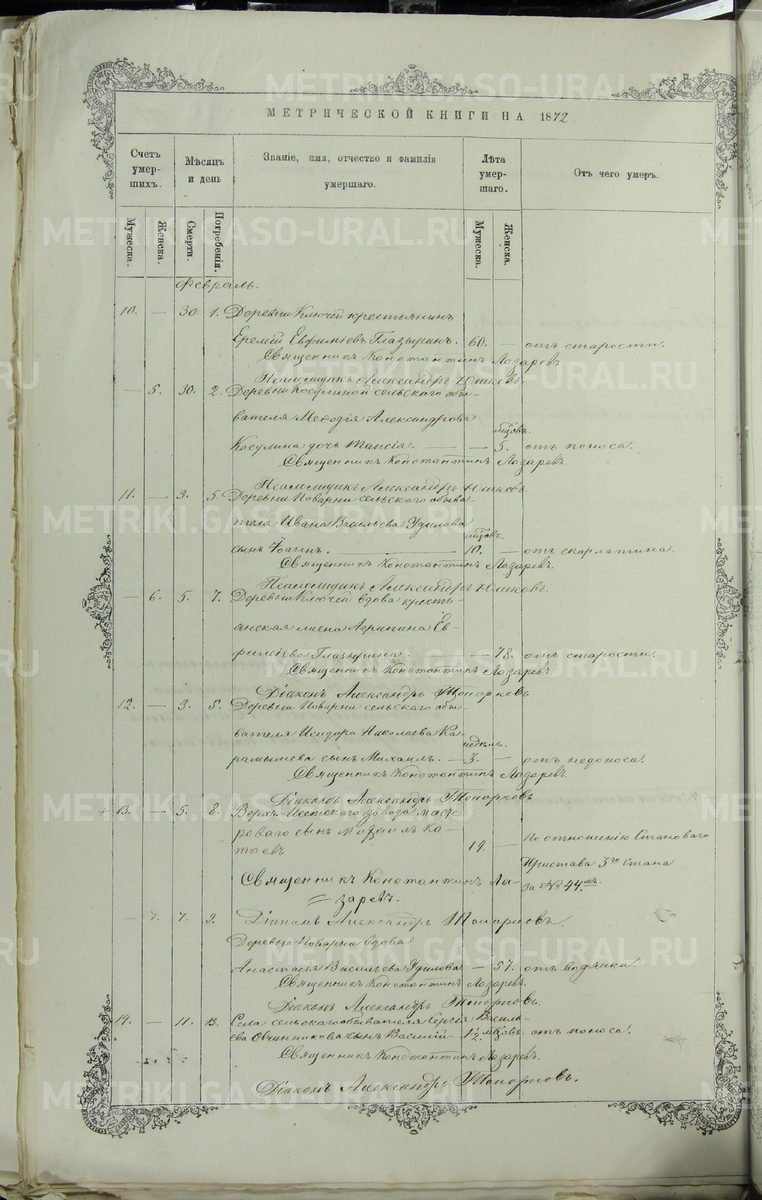 МЕТРИЧЕСКОЙ КНИГИ НА 1872
Счетъ умер-шихъ.
Мѣсяцъ и день
Званіе, имя, отчество и фамилія умершаго.
Лѣта умер-шаго.
Отъ чего умеръ.
Мужеска.
Женска.
Смерти.
Погребенія.
Мужеска.
Женска.
Февраль.
10. — 30 1. Деревни Ключей крестьянинъ
Еремій Евфиміевъ Глазыринъ. 60. — отъ старости.
Священникъ Константинъ Лазаревъ
Псаломщикъ Александръ
— 5. 30. 2. Деревни Косулиной сельскаго обы-
вателя Меѳодія Александрова
мѣсяцовъ.
Косулина дочь Таисія. — — 5. отъ поноса.
Священникъ Константинъ Лазаревъ.
Псаломщикъ Александръ
11. — 3. 5. Деревни Поварни сельскаго обыва-
теля Ивана Васильева Удилова
мѣсяцовъ.
сынъ Іоаннъ. — 10. — отъ скарлатина.
Священникъ Константинъ Лазаревъ.
Псаломщикъ Александръ
— 6. 5. 7. Деревни Ключей вдова кресть-
янская жена Агрипина Ев-
Глазырина. — 78. отъ старости.
Священникъ Константинъ Лазаревъ.
Діаконъ Александръ Топорковъ
12. — 3. 5. Деревни Поварни сельскаго обы-
вателя Исидора Николаева Ка-
недѣль.
рамышева сынъ Михаилъ. — 3. — отъ недоноса.
Священникъ Константинъ Лазаревъ.
Діаконъ Александръ Топорковъ
13. — 5. 8. Верхъ-Исетскаго завода масте-
роваго сынъ Михаилъ Ка-
таевъ 19. — По отношенію Становаго
Пристава 3го Стана
за № 44.мъ
Священникъ Константинъ Ла-
заревъ.
— 7. 7. 9. Діаконъ Александръ Топорковъ.
Деревни Поварни вдова
Анастасія Васильева Удилова — 57. отъ водянки.
Священникъ Константинъ Лазаревъ.
Діаконъ Александръ Топорковъ.
14. — 11. 13. Села сельскаго обывателя Сергія Василь-
ева Овчинникова сынъ Василій 1½ мѣсяцовъ. отъ поноса.
Священникъ Константинъ Лазаревъ.
Діаконъ Александръ Топорковъ.
METRIKI.GASO-URAL.RU